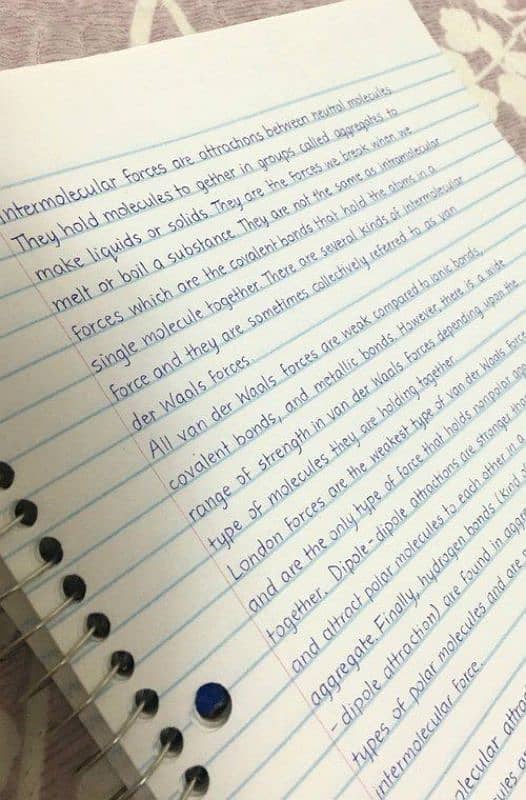 Intermolecular forces are attractions between neutral molecules
They hold molecules to gether in groups called aggregates to
make liquids or solids They are the forces we break when we
melt or boil a substance They are not the same as intramolecular
forces which are the covalent bonds that hold the atoms in a
single molecule together. There are several kinds of intermolecular
force and they are sometimes collectively referred to as van
der Waals forces.
All van der Waals forces are weak compared to ionic bonds,
covalent bonds, and metallic bonds. However, there is a wide
range of strength in van der Waals forces depending upon the
type of molecules they are holding together
London forces are the weakest type of van der Waals force
and are the only type of force that holds nonpolar
together. Dipole-dipole attractions are stronger
and attract polar molecules to each other in
aggregate. Finally, hydrogen bonds (kind
-dipole attraction) are found in
types of polar molecules and are
intermolecular force.